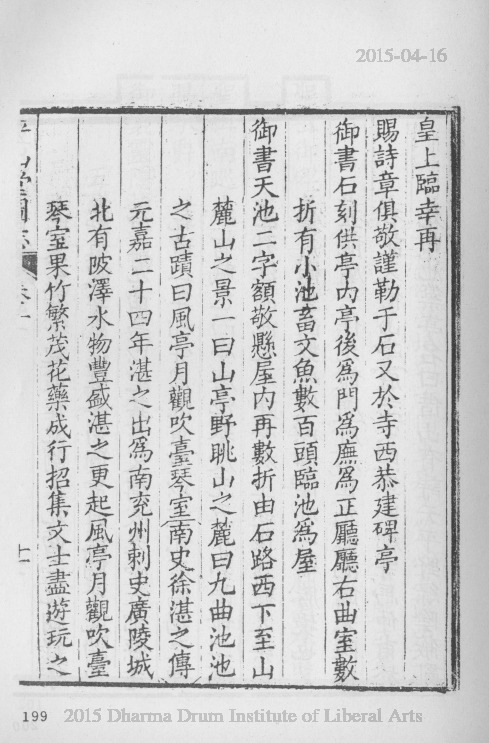 2015-04-16
皇上臨幸再
賜詩章俱敬謹勒于石又於寺西恭建碑亭
御書石刻供亭内亭後爲門爲廡爲正廳廳右曲室數
折有小池畜文魚數百頭臨池爲屋
御書天池二字額敬懸屋内再數折由石路西下至山
麓山之景一曰山亭野眺山之麓曰九曲池池
之古蹟曰風亭月觀吹臺琴室南史徐湛之傳
元嘉二十四年湛之出爲南兖州刺史廣陵城
北有陂澤水物豐盛湛之更起風亭月觀吹臺
琴室果竹繁茂花藥成行招集文士盡遊玩之
山堂圖志
卷一
十一
199 2015 Dharma Drum Institute of Liberal Arts